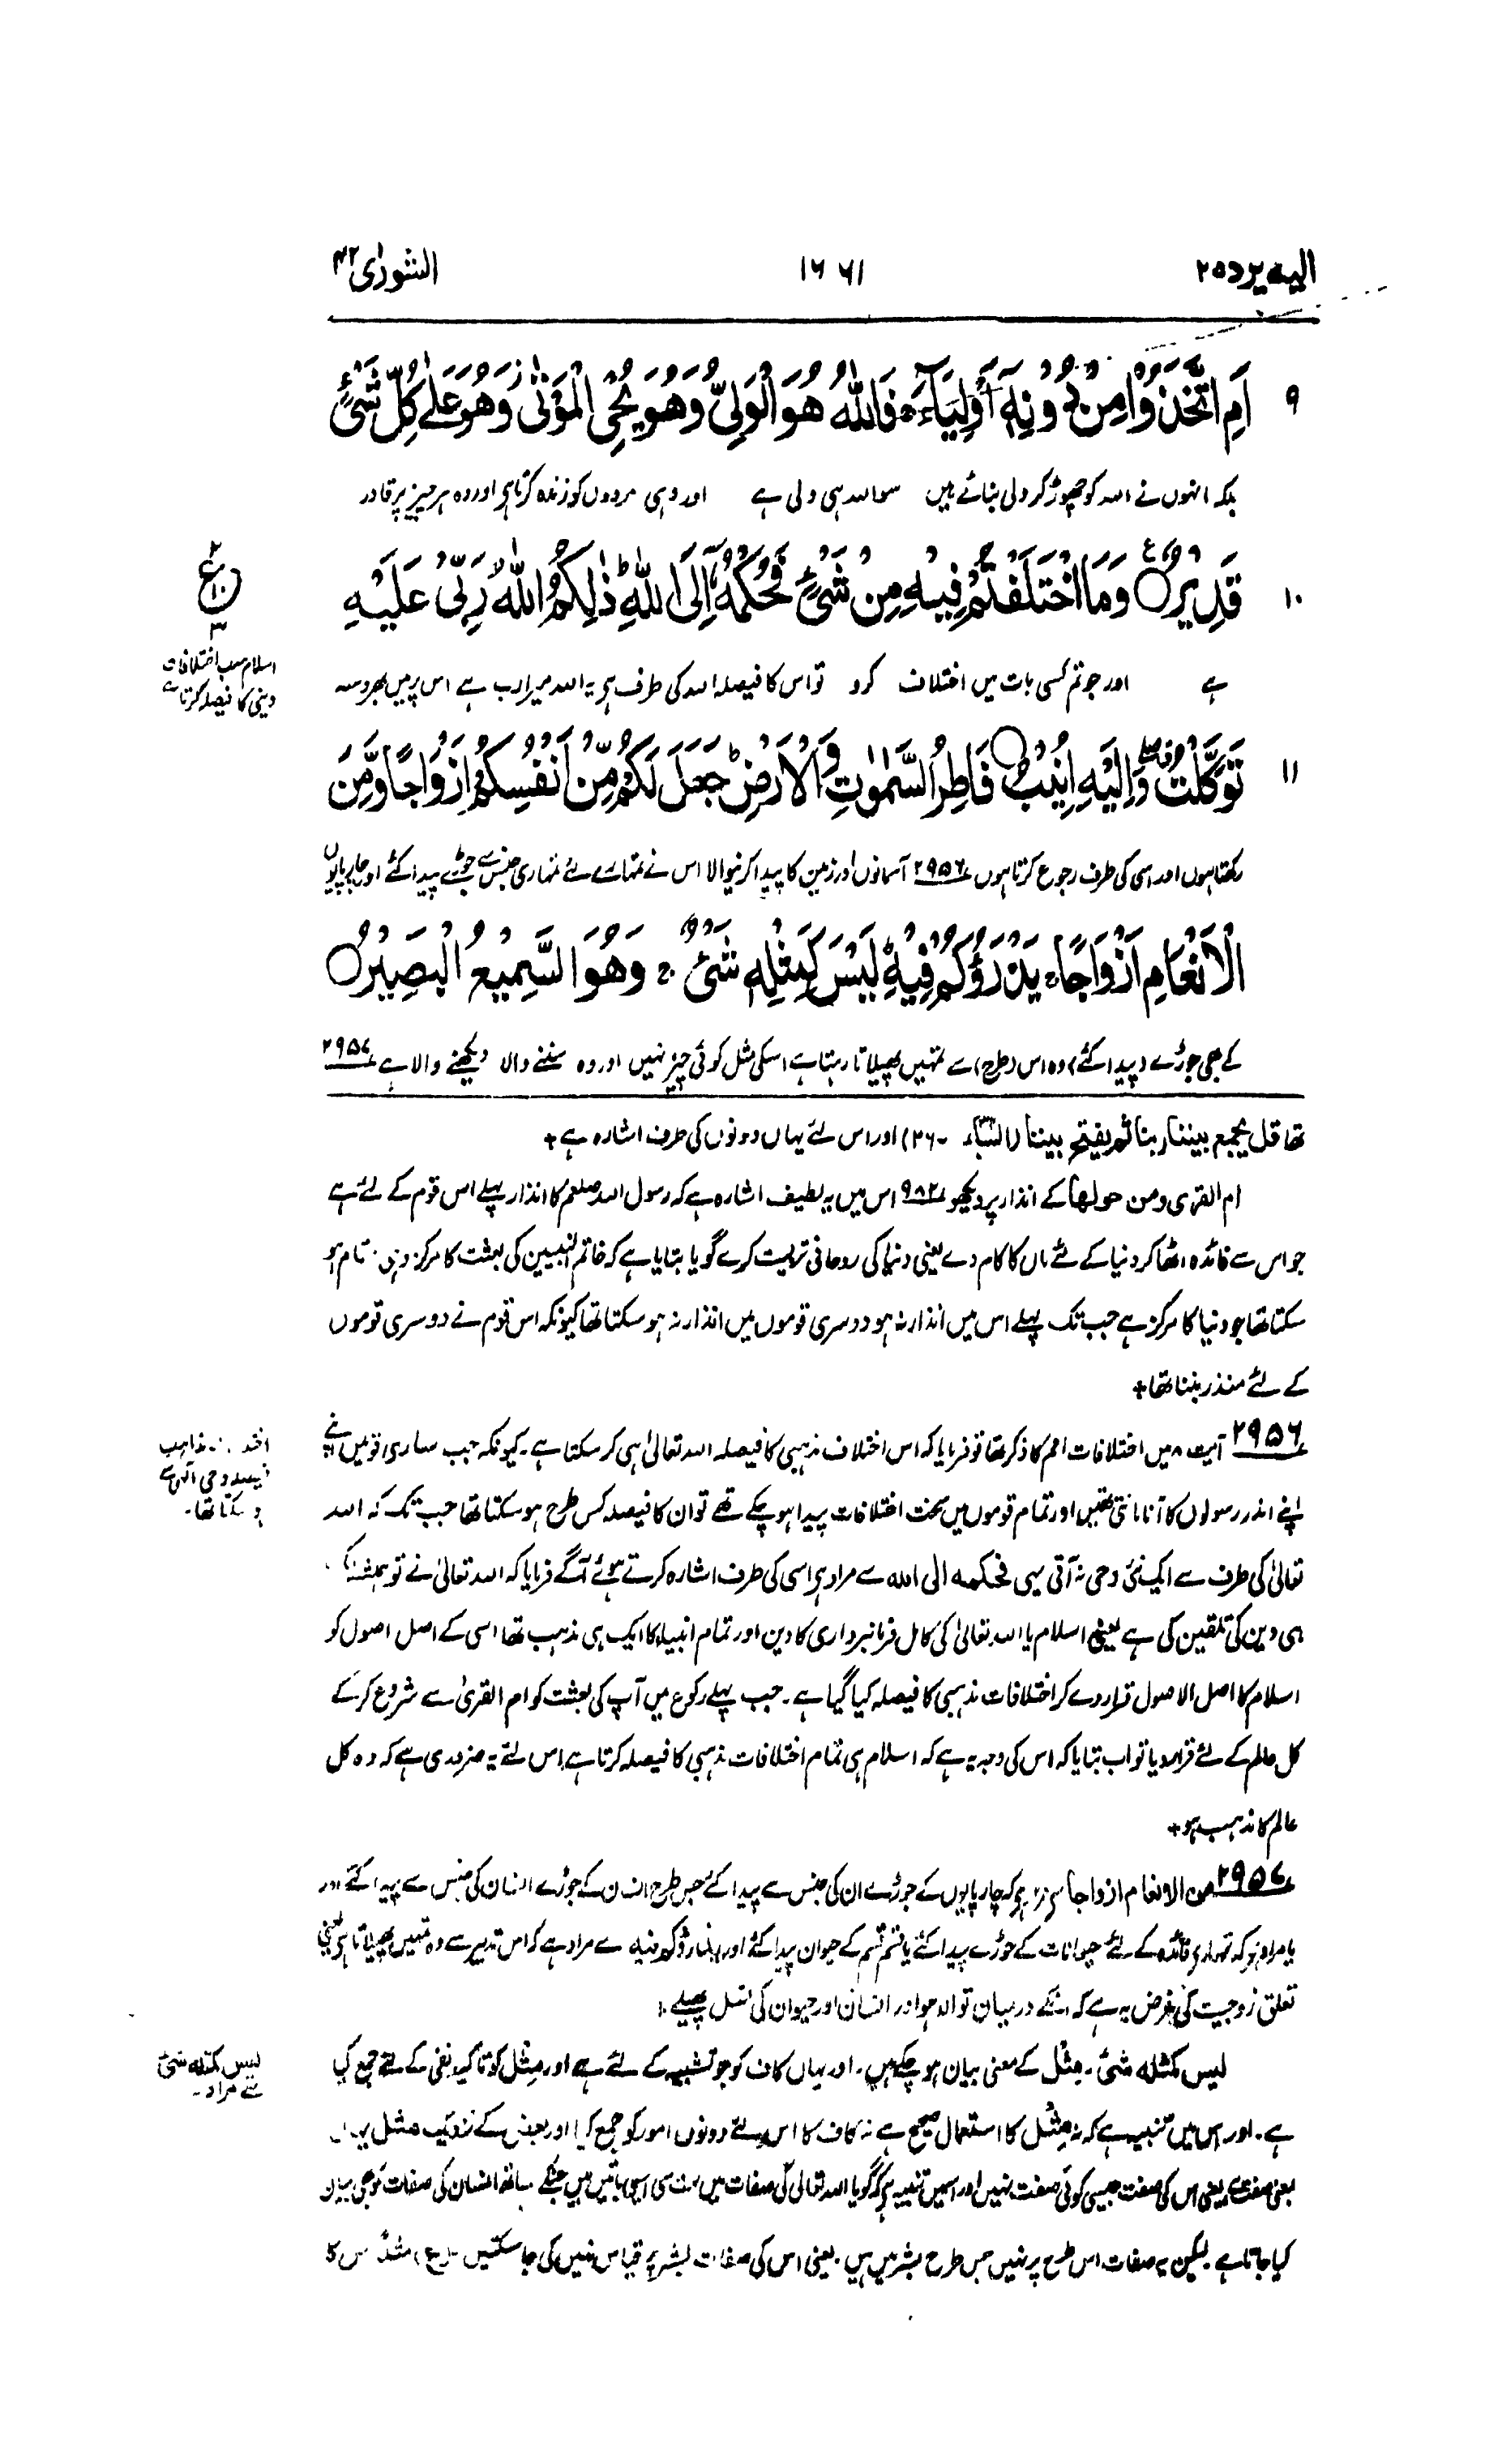 الیه یرد ۲۵
۱۶۶۱
الشوریٰ ۴۲
۹ اَمِ اتَّخَذُوْا مِنْ دُوْنِهٖۤ اَوْلِیَآءَ ۚ فَاللّٰهُ هُوَ الْوَلِیُّ وَهُوَ یُحْیِ الْمَوْتٰی ؗ وَهُوَ عَلٰی كُلِّ شَیْءٍ
بلکہ انہوں نے اللہ کو چھوڑ کر ولی بنائے ہیں سو اللہ ہی ولی ہے اور وہی مردوں کو زندہ کرتا ہی اور وہ ہر چیز پر قادر
۱۰ قَدِیْرٌ ۝ وَمَا اخْتَلَفْتُمْ فِیْهِ مِنْ شَیْءٍ فَحُكْمُهٗۤ اِلَی اللّٰهِ ؕ ذٰلِكُمُ اللّٰهُ رَبِّیْ عَلَیْهِ
ع
۲
۱۰
۳
اسلام سب اختلافات
دینی کا فیصلہ کرتا ہے
ہے اور جو تم کسی بات میں اختلاف کرو تو اس کا فیصلہ اللہ کی طرف ہی یہ اللہ میرا رب ہے اس پر میں بھروسہ
۱۱ تَوَكَّلْتُ ۖ وَاِلَیْهِ اُنِیْبُ ۝ فَاطِرُ السَّمٰوٰتِ وَالْاَرْضِ ؕ جَعَلَ لَكُمْ مِّنْ اَنْفُسِكُمْ اَزْوَاجًا وَّمِنَ
رکھتا ہوں اور اسی کی طرف رجوع کرتا ہوں ۲۹۵۶ آسمانوں اور زمین کا پیدا کرنیوالا اس نے تمہارے لئے تمہاری جنس سے جوڑے پیدا کئے اور چارپایوں
الْاَنْعَامِ اَزْوَاجًا ۚ یَذْرَؤُكُمْ فِیْهِ ؕ لَیْسَ كَمِثْلِهٖ شَیْءٌ ۚ وَهُوَ السَّمِیْعُ الْبَصِیْرُ ۝
کے بھی جوڑے (پیدا کئے) وہ اس (طرح) سے تمہیں پھیلاتا رہتا ہے اسکی مثل کوئی چیز نہیں اور وہ سننے والا دیکھنے والا ہے ۲۹۵۷
تھا قل یجمع بیننا ربنا ثم یفتح بیننا (السباء ۔۲۶) اور اس لئے یہاں دونوں کی طرف اشارہ ہے +
ام القریٰ ومن حولھا کے انذار پر دیکھو ۹۸۲ اس میں یہ لطیف اشارہ ہے کہ رسول اللہ صلعم کا انذار پہلے اس قوم کے لئے ہے
جو اس سے فائدہ اٹھا کر دنیا کے لئے ماں کا کام دے یعنی دنیا کی روحانی تربیت کرے گویا بتایا ہے کہ خاتم النبیین کی بعثت کا مرکز وہی مقام ہو
سکتا تھا جو دنیا کا مرکز ہے جب تک پہلے اس میں انذار نہ ہو دوسری قوموں میں انذار نہ ہو سکتا تھا کیونکہ اس قوم نے دوسری قوموں
کے لئے منذر بننا تھا +
۲۹۵۶ آیت ۸ میں اختلافات امم کا ذکر تھا تو فرمایا کہ اس اختلاف مذہبی کا فیصلہ اللہ تعالیٰ ہی کر سکتا ہے۔ کیونکہ جب ساری قومیں اپنے
مذاہب
وحی الٰہی سے
سکتا تھا۔
اپنے اندر رسولوں کا آنا مانتی تھیں اور تمام قوموں میں سخت اختلافات پیدا ہو چکے تھے تو ان کا فیصلہ کس طرح ہو سکتا تھا جب تک کہ اللہ
تعالیٰ کی طرف سے ایک نئی وحی نہ آتی یہی فحکمه الی الله سے مراد ہی اسی کی طرف اشارہ کرتے ہوئے آگے فرمایا کہ اللہ تعالیٰ نے تو ہمیشہ ایک
ہی دین کی تلقین کی ہے یعنی اسلام یا اللہ تعالیٰ کی کامل فرمانبرداری کا دین اور تمام انبیاء کا ایک ہی مذہب تھا اسی کے اصل اصول کو
اسلام کا اصل الاصول قرار دے کر اختلافات مذہبی کا فیصلہ کیا گیا ہے۔ جب پہلے رکوع میں آپ کی بعثت کو ام القریٰ سے شروع کرکے
کل عالم کے لئے قرار دیا تو اب بتایا کہ اس کی وجہ یہ ہے کہ اسلام ہی تمام اختلافات مذہبی کا فیصلہ کرتا ہے اس لئے یہ ضروری ہے کہ وہ کل
عالم کا مذہب ہو +
۲۹۵۷ من الانعام ازواجا سے مراد ہی کہ چارپایوں کے جوڑے ان کی جنس سے پیدا کئے جس طرح انسان کے جوڑے انسان کی جنس سے پیدا کئے اور
یا مراد ہو کہ تمہارے فائدہ کے لئے حیوانات کے جوڑے پیدا کئے یا قسم قسم کے حیوان پیدا کئے اور یذرؤکم فیه سے مراد ہے کہ اس تدبیر سے وہ تمہیں پھیلاتا ہی یعنی
تعلق زوجیت کی غرض یہ ہے کہ انکے درمیان توالد ہو اور انسان اور حیوان کی نسل پھیلے
لیس کمثله شئ ۔ مِثْل کے معنی بیان ہو چکے ہیں ۔ اور یہاں کاف کو جو تشبیہ کے لئے ہے اور مِثل کو تاکید نفی کے لئے جمع کیا
لیس کمثله شئ
سے مراد۔
ہے۔ اور اس میں تنبیہ ہے کہ نہ مِثْل کا استعمال صحیح ہے نہ کاف کا اس لئے دونوں امور کو جمع کیا اور بعض کے نزدیک مثل یہاں
بمعنی صفت ہے یعنی اس کی صفت جیسی کوئی صفت نہیں اور اسمیں تنبیہ ہی کہ گویا اللہ تعالیٰ کی صفات میں بہت سی ایسی باتیں ہیں جنکے ساتھ انسان کی صفات کو بھی بیان
کیا جاتا ہے لیکن یہ صفات اس طرح پر نہیں جس طرح بشر میں ہیں۔ یعنی اس کی صفات بشر پر قیاس نہیں کی جا سکتیں